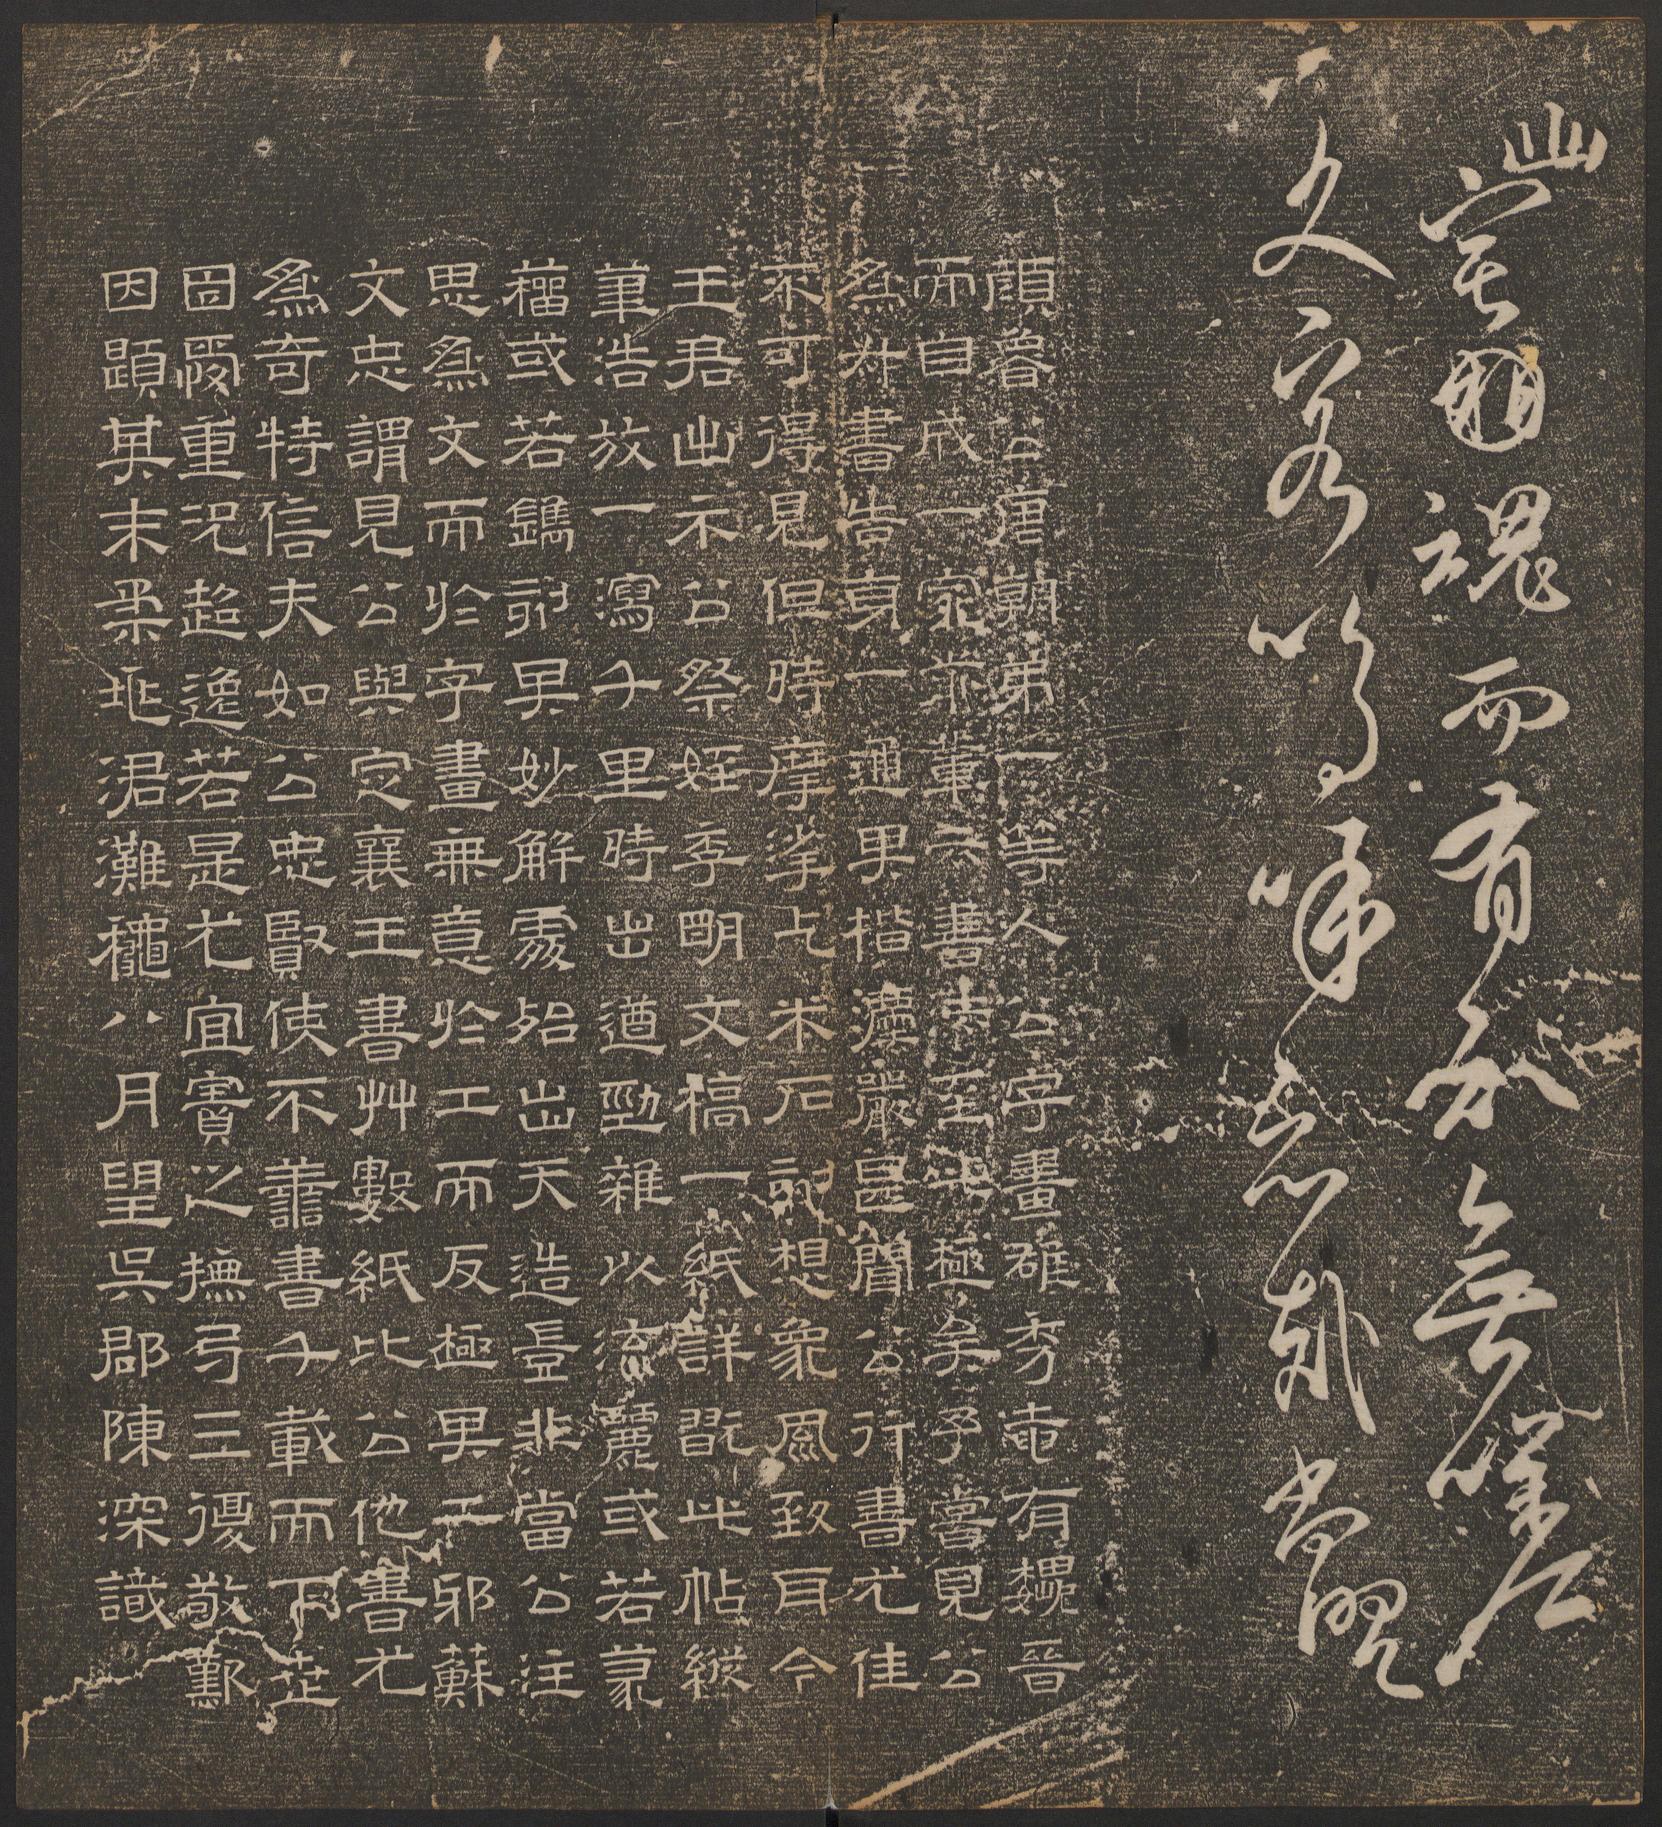 幽宅魂而有知無嗟
久客嗚呼哀哉尚饗
顏魯公唐朝弟一等人公字畫雄秀奄有魏晉
而自成一家前輩云書法至此極矣予嘗見公
為書告身一通果楷灋嚴聞公行書尤佳
不可得見但時摩挲乞米石刻想象風致耳今
王君出示公祭姪季明文稿一紙詳翫此帖縱
筆浩放一瀉千里時出遒勁雜以流麗或若篆
籀或若鐫刻其妙解處殆出天造豈非當公注
思為文而於字畫無意於工而反極其工邪蘇
文忠謂見公與定襄王書艸數紙比公他書尤
為奇特信夫如公忠賢使不善書千載而下世
固愛重況超逸若是尤宜寶之撫卷三復敬歎
因題其末柔兆涒灘龝八月望吳郡陳深識